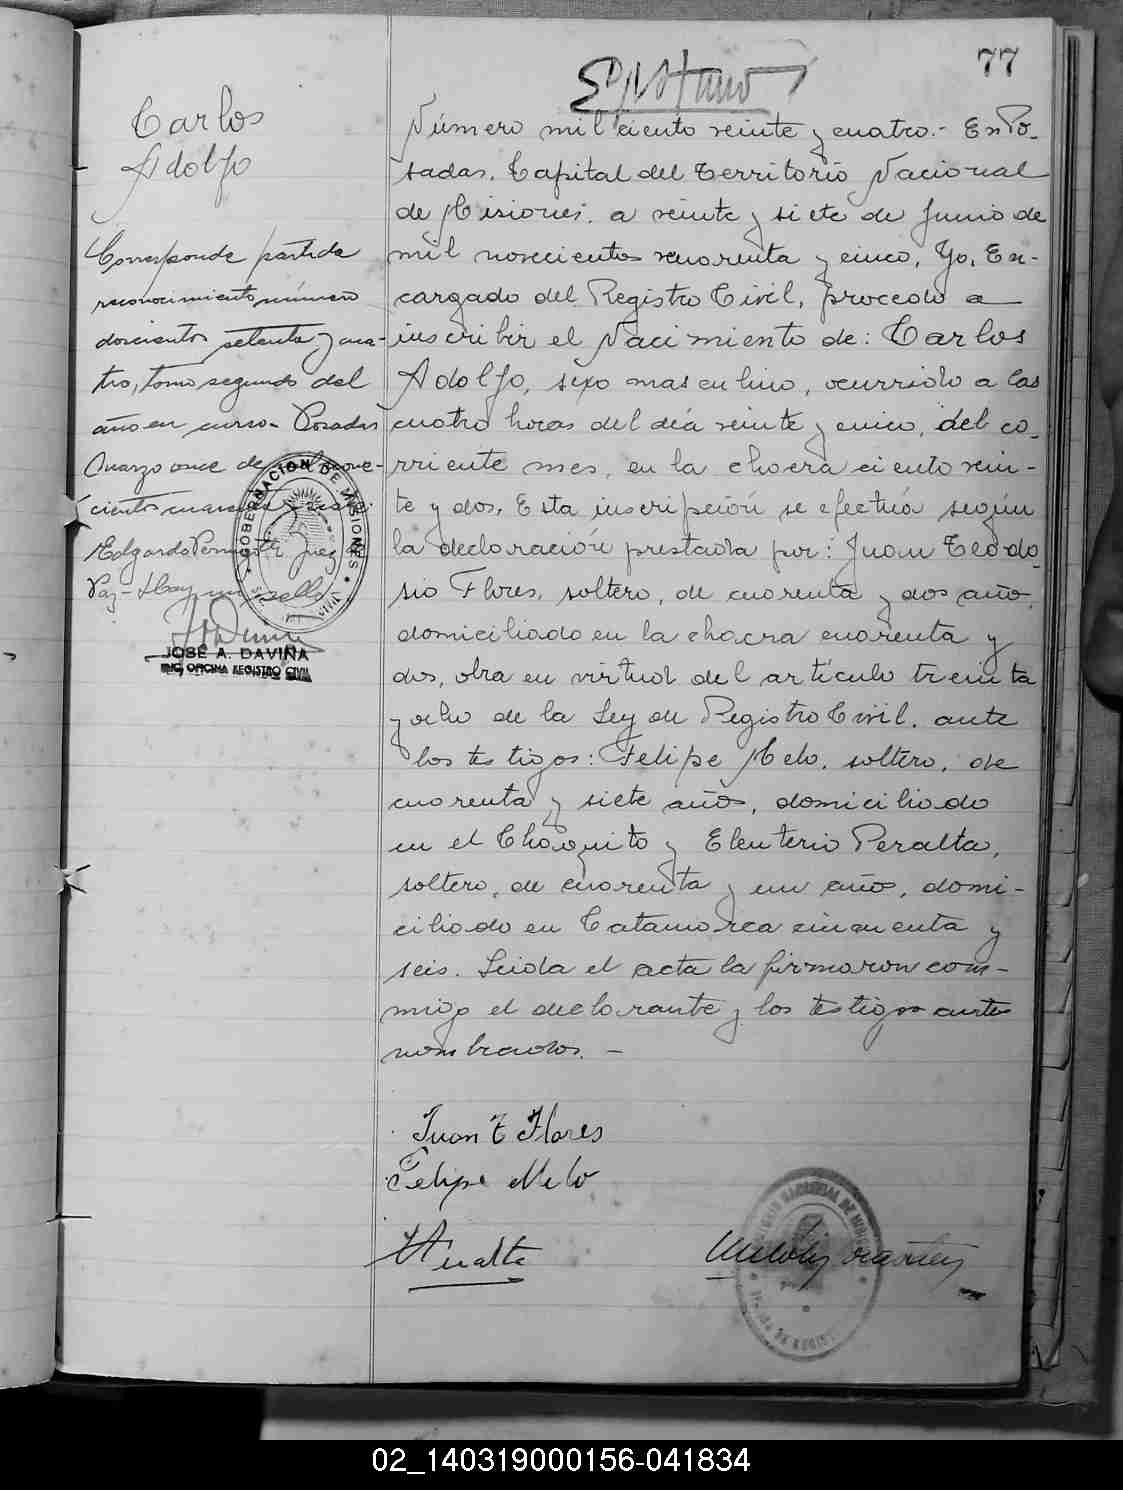 77
Carlos
Adolfo
Corresponde partida
reconocimiento número
doscientos setenta y cua-
tro, tomo segundo del
año en curso. Posadas
Marzo once de
cientos
Edgardo Juez de
Paz - Hay un sello
GOBERNACION DE MISIONES
JOSÉ A. DAVIÑA
ENC. OFICINA REGISTRO CIVIL
Número mil ciento veinte y cuatro.- En Po-
sadas, Capital del Territorio Nacional
de Misiones, a veinte y siete de Junio de
mil novecientos cuarenta y cinco, Yo, En-
cargado del Registro Civil, procedo a
inscribir el Nacimiento de: Carlos
Adolfo, sexo masculino, ocurrido a las
cuatro horas del día veinte y cinco, del co-
rriente mes, en la chacra ciento vein-
te y dos. Esta inscripción se efectúa según
la declaración prestada por: Juan Teodo-
sio Flores, soltero, de cuarenta y dos años,
domiciliado en la chacra cuarenta y
dos, obra en virtud del artículo treinta
y ocho de la Ley de Registro Civil, ante
los testigos: Felipe Melo, soltero, de
cuarenta y siete años, domiciliado
en el Chaquito y Eleuterio Peralta,
soltero, de cuarenta y un años, domi-
ciliado en Catamarca cincuenta y
seis. Leida el acta la firmaron con-
migo el declarante y los testigos antes
nombrados. -
Juan T Flores
Felipe Melo
Peralta
02_140319000156-041834